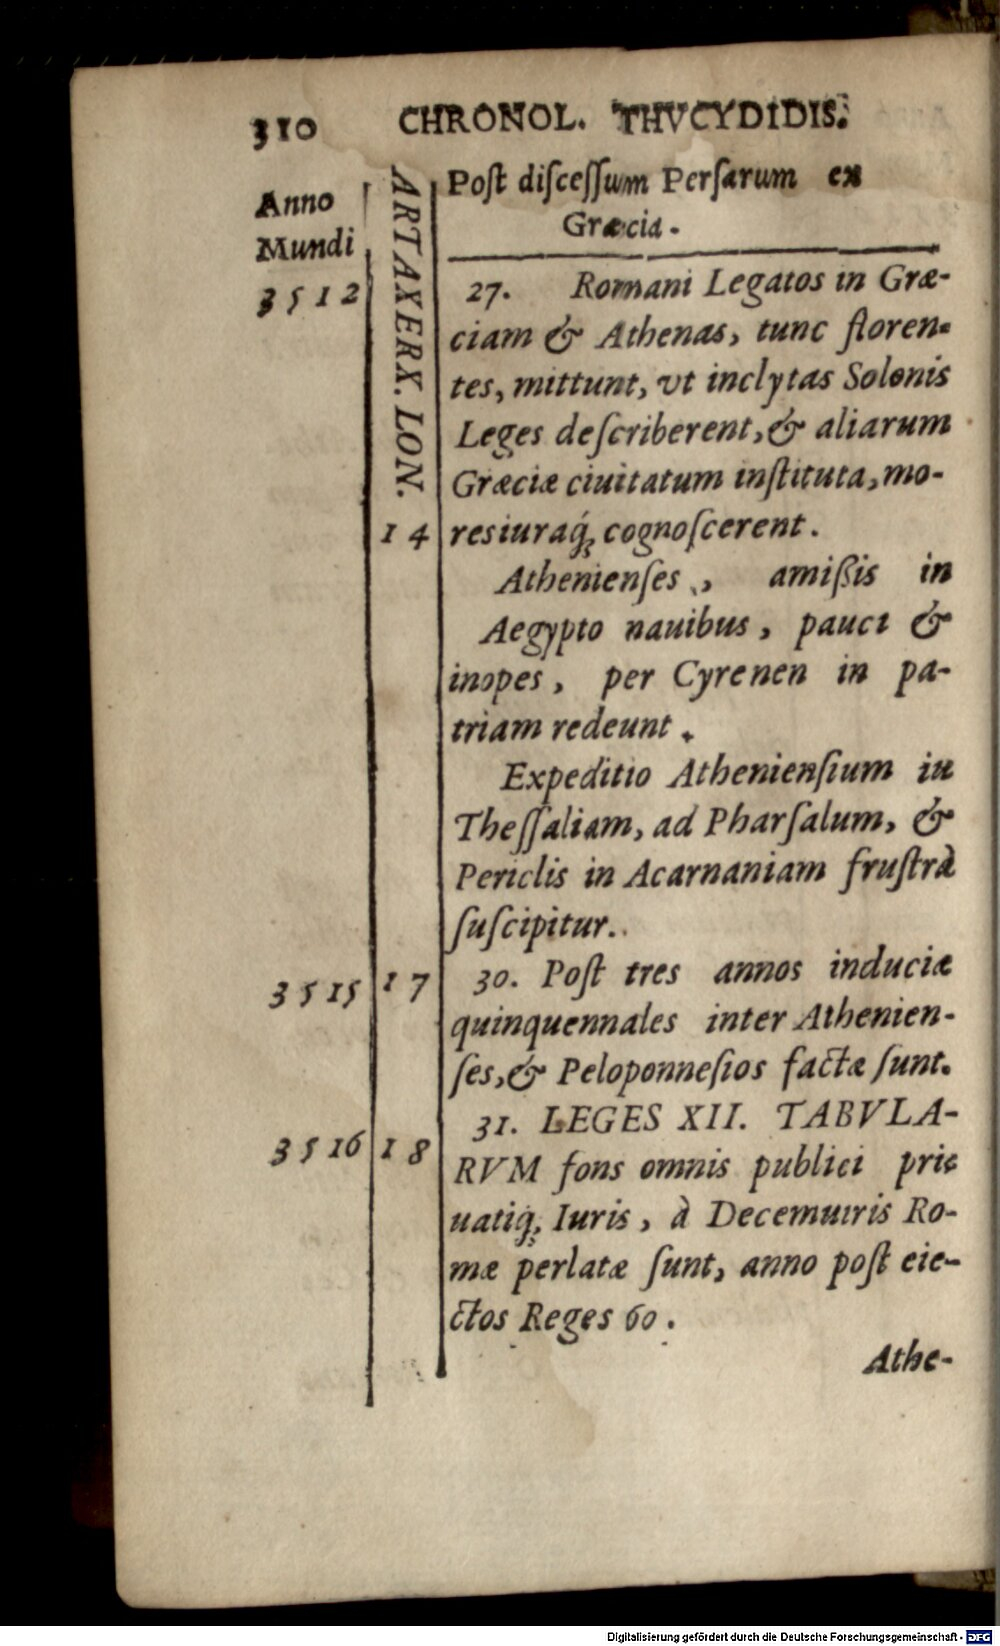 310 CHRONOL. THVCYDIDIS.
Anno
Mundi
ARTAXERX. LON.
Poſt diſceſſum Perſarum ex
Græcia.
3512 27. Romani Legatos in Græ-
ciam & Athenas, tunc floren-
tes, mittunt, vt inclytas Solonis
Leges deſcriberent, & aliarum
Græciæ ciuitatum inſtituta, mo-
14 res iuraq́; cognoſcerent.
Athenienſes, amißis in
Aegypto nauibus, pauci &
inopes, per Cyrenen in pa-
triam redeunt.
Expeditio Athenienſium in
Theſſaliam, ad Pharſalum, &
Periclis in Acarnaniam fruſtrà
ſuſcipitur.
3515 17 30. Poſt tres annos induciæ
quinquennales inter Athenien-
ſes, & Peloponneſios factæ ſunt.
3516 18 31. LEGES XII. TABVLA-
RVM fons omnis publici pri-
uatiq́; Iuris, à Decemuiris Ro-
mæ perlatæ ſunt, anno poſt eie-
ctos Reges 60.
Athe-
Digitalisierung gefördert durch die Deutsche Forschungsgemeinschaft - DFG